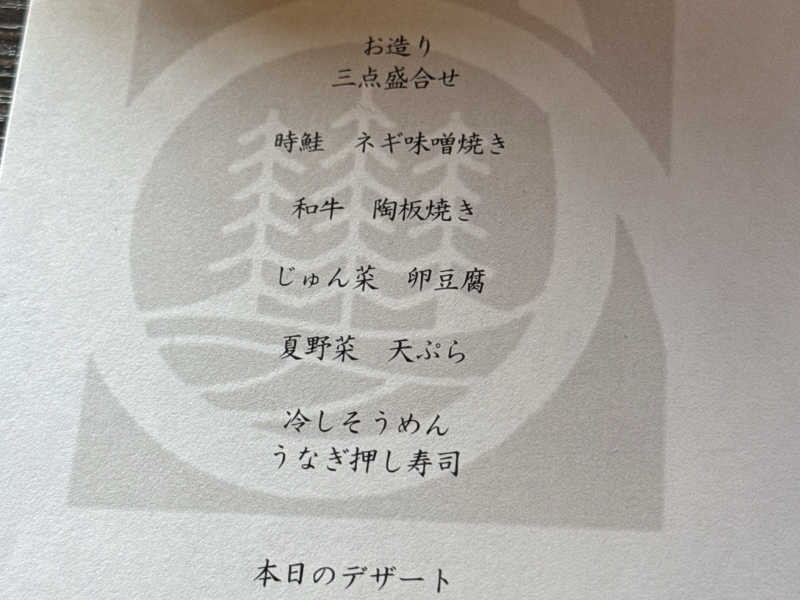 お造り
三点盛合せ
時鮭　ネギ味噌焼き
和牛　陶板焼き
じゅん菜　卵豆腐
夏野菜　天ぷら
冷しそうめん
うなぎ押し寿司
本日のデザート